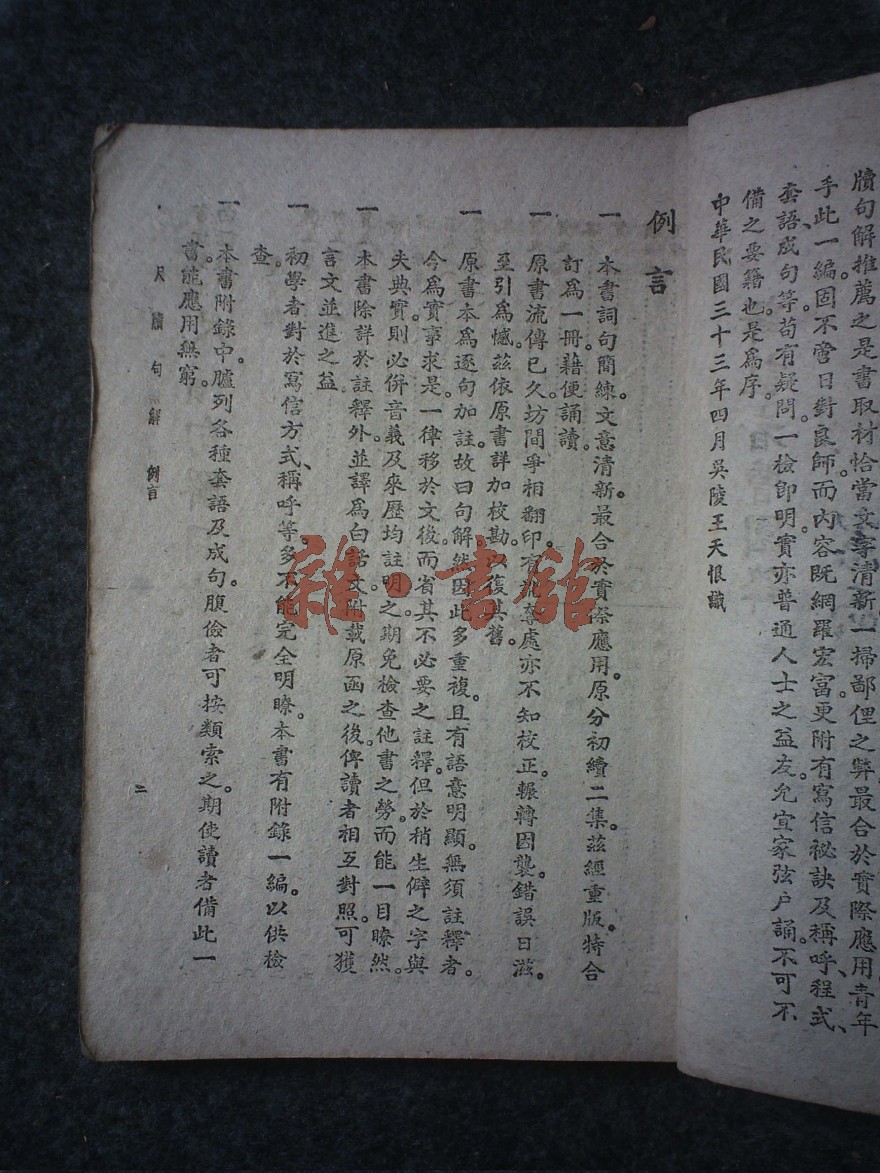 牘句解推薦之是書取材恰當文字清新一掃鄙俚之弊最合於實際應用青年
手此一編固不啻日對良師而內容既網羅宏富更附有寫信秘訣及稱呼程式、
套語、成句等苟有疑問。一檢即明實亦普通人士之益友允宜家弦户誦。不可不
備之要籍也是為序。
中華民國三十三年四月吳陵王天恨識
例言
一 本書詞句簡練文意清新。最合於實際應用原分初續二集。茲經重版特合
訂為一冊。藉便誦讀。
一 原書流傳已久。坊間爭相翻印。有訛奪處亦不知校正。輾轉因襲。錯誤日滋。
至引為憾。茲依原書詳加校勘。以復其舊。
一 原書本為逐句加註。故曰句解。然因此多重複。且有語意明顯。無須註釋者。
今為實事求是。一律移於文後。而省其不必要之註釋。但於稍生僻之字與
失典實。則必併音義及來歷均註明之。期免檢查他書之勞。而能一目瞭然。
一 本書除詳於註釋外。並譯為白話文。附載原函之後。俾讀者相互對照。可獲
言文並進之益
一 初學者對於寫信方式、稱呼等。多不能完全明瞭。本書有附錄一編。以供檢
查。
一 本書附錄中。臚列各種套語及成句。腹儉者可按類索之。期使讀者備此一
書。能應用無窮。
尺牘句解 例言
二
雜·書館